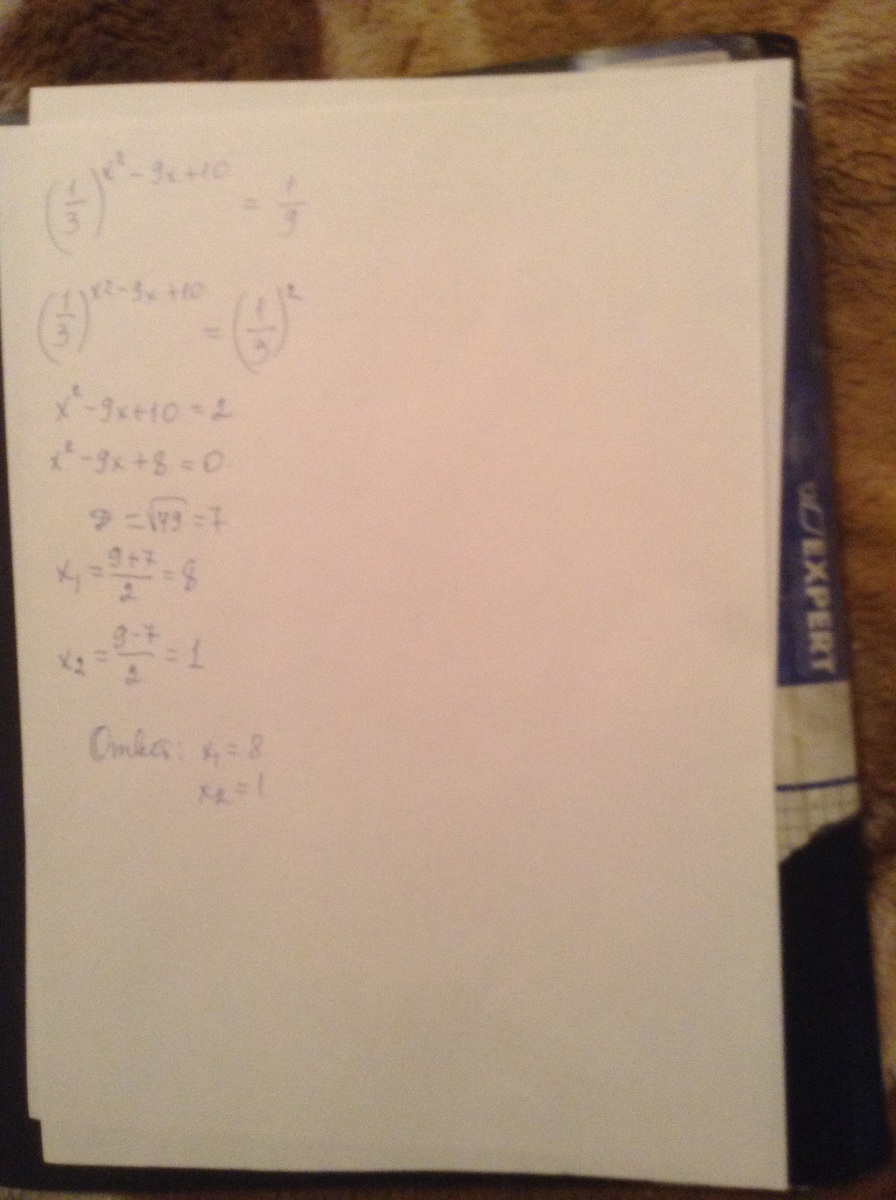 (1/3)^(x² - 9x + 10) = 1/9
(1/3)^(x² - 9x + 10) = (1/3)²
x² - 9x + 10 = 2
x² - 9x + 8 = 0
= √49 = 7
x₁ = (9+7)/2 = 8
x₂ = (9-7)/2 = 1
Ответ: x₁ = 8
x₂ = 1
EXPERT